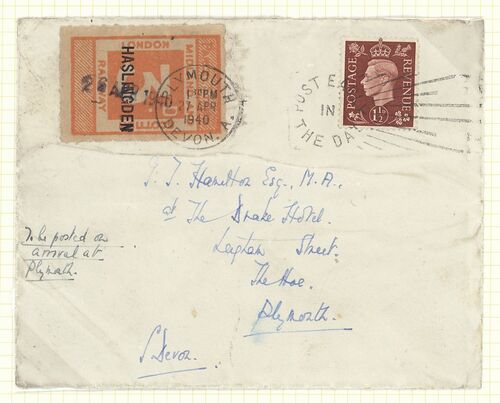 LONDON
MIDLAND
RAILWAY
HASLINGDEN
PLYMOUTH
PM
27 APR
1940
DEVON. A.
POST E
IN
THE DA
POSTAGE
REVENUE
1½
J. J. Hamilton Esq., M.A.,
at The Drake Hotel.
Leigham Street.
The Hoe.
Plymouth.
S. Devon.
To be posted on
arrival at
Plymouth.